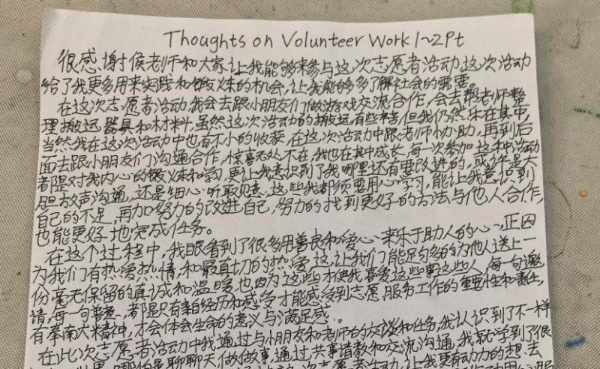 Thoughts on Volunteer Work 1~2Pt
很感谢侯老师和大家让我能够来参与这次志愿者活动这次活动
给了我更多用来实践和锻炼的机会,让我能够多了解社会的需要
在这次志愿者活动我会去跟小朋友们做游戏交流合作,会去帮老师整
理搬运器具和材料,虽然这次活动的搬运有些苦但我仍然乐在其中,
当然我在这次活动中也有不小的收获,在这次活动中跟老师协助,再到后
面去跟小朋友们沟通合作,惊喜无处不在,我也在其中成长,每一次参加这种活动
都是对我内心的锻炼和学习,更让我意识到了我哪里还有要改进的,或许是大
胆放声沟通,还是细心听取见意,这些我都须要用心学习,能让我意识到
自己的不足,再加努力的改进自己,努力的找到更好的方法与他人合作,
也能更好地完成任务。
在这个过程中,我眼看到了很多用善良和爱心来乐于助人的心,正因
为我们有热爱热情和最真切的热爱,这让我们能足句多的为他人送上一
份毫无保留的真诚和温暖,也因为这些才使我喜爱这些事这些人,每一句邀
请,每一句喜爱,都是只有亲自经历和感受才能感受到志愿服务工作的重要性和责任,
有奉南大精中,才会体会生命的意义与满足感.
在此次志愿者活动中我通过与小朋友和老师的交谈和任务,我认识到了不一样
哪怕是聊聊天做做故事,通过共事请教和交流沟通,我就学到了很